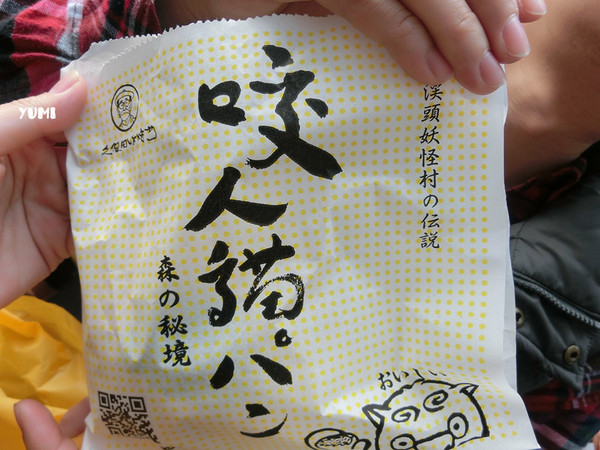 溪頭妖怪村の伝説
咬人貓パン
森の秘境
おいしい
YUMI